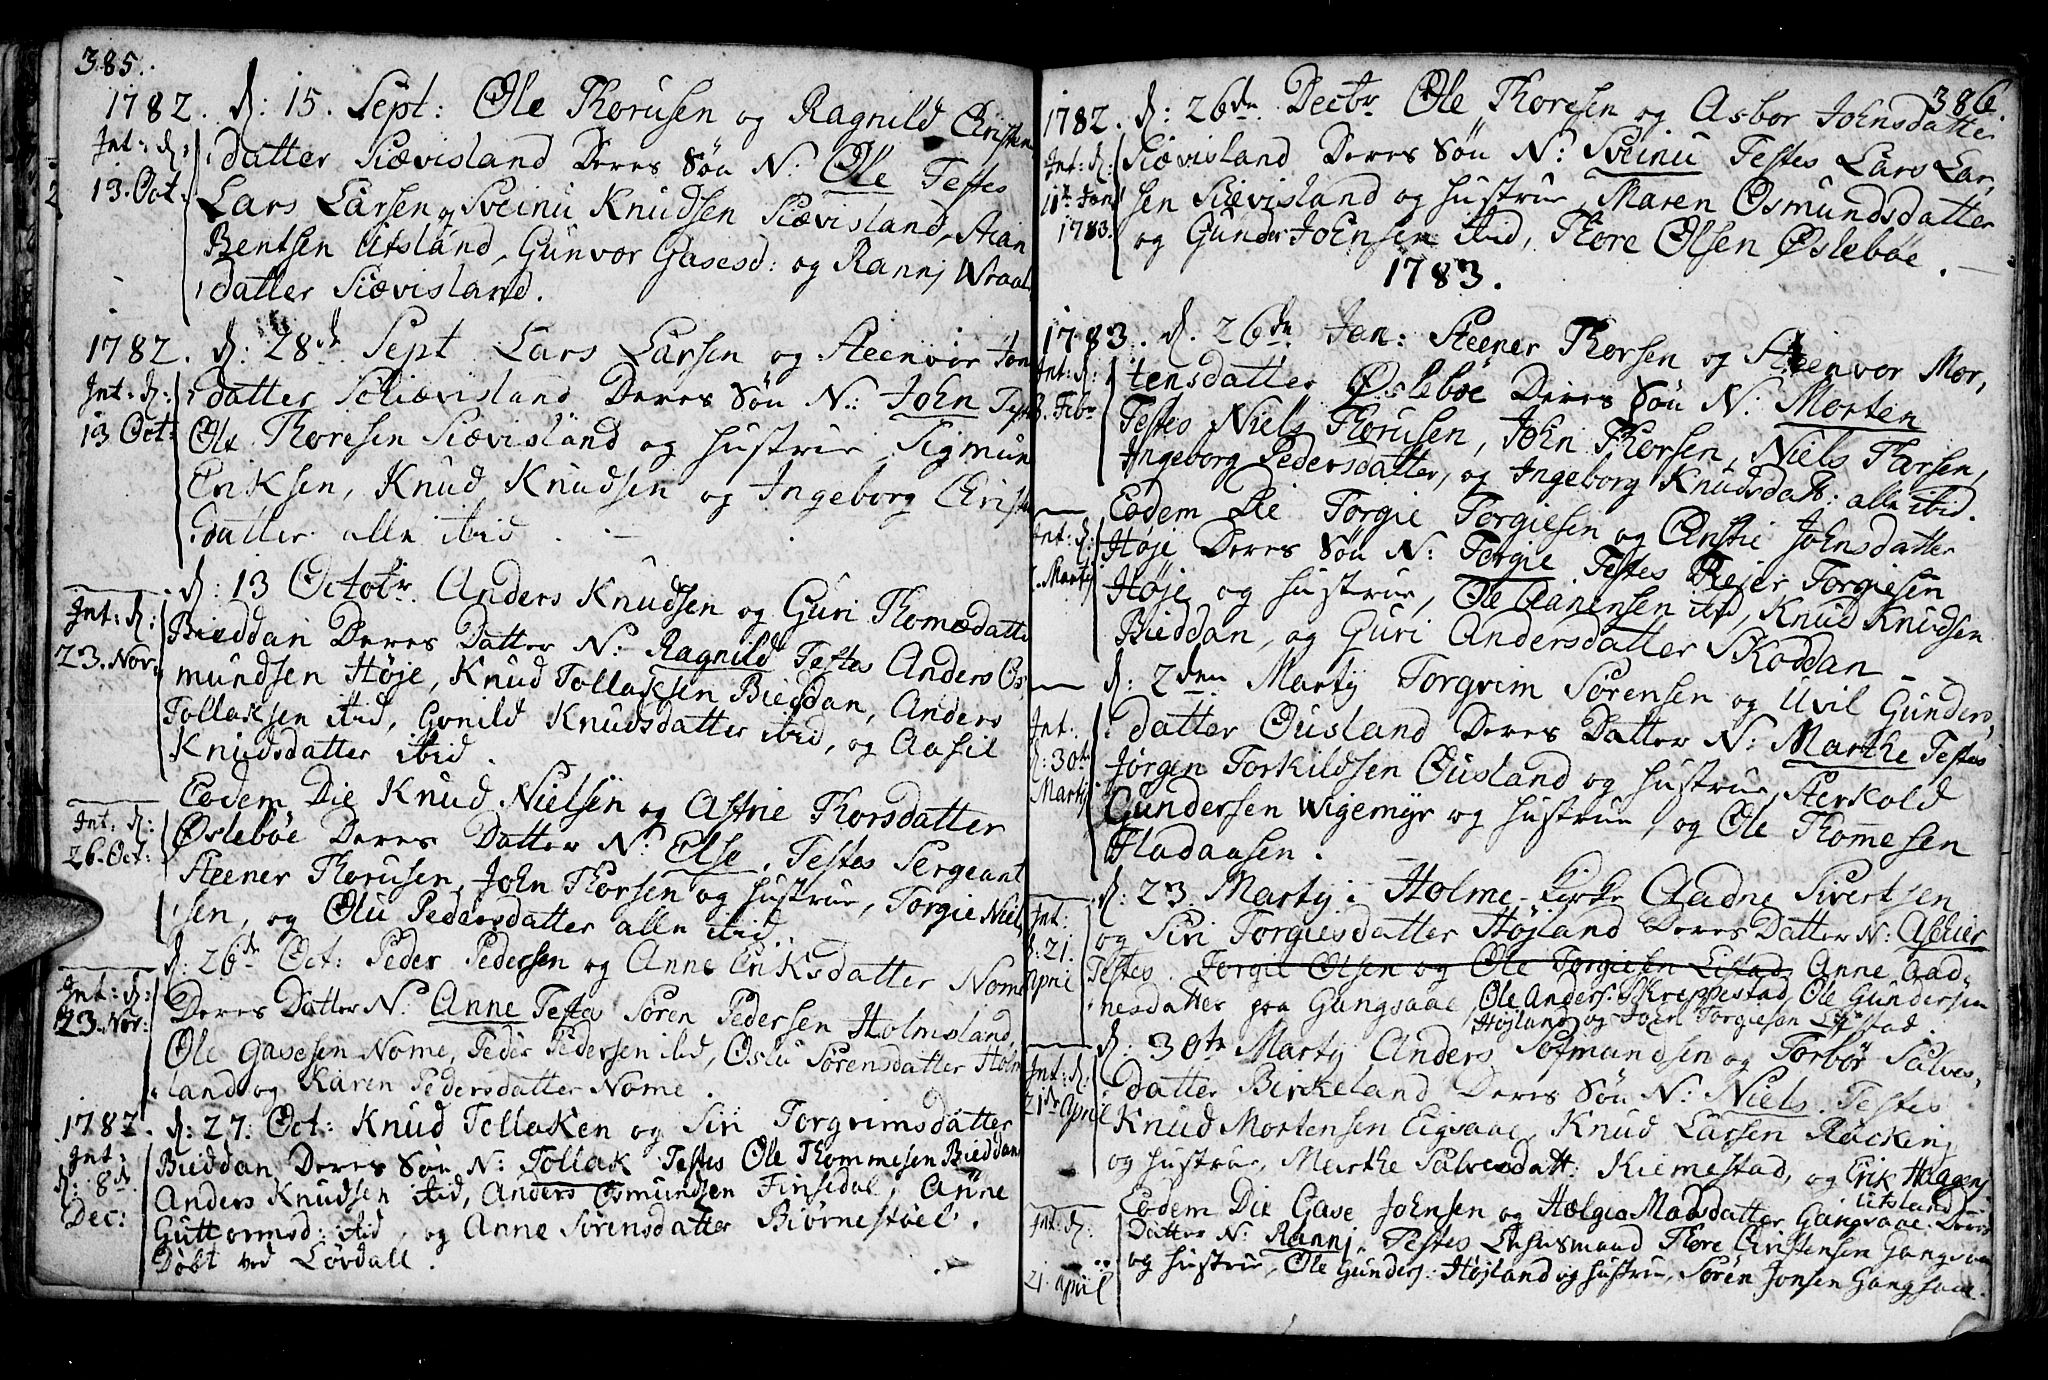 385.
1782. d: 15. Sept: Ole Thorusen og Ragnild Christens
Int: d: datter Siævisland Deres Søn N: Ole Testes
13. Oct. Lars Larsen og Sveinu Knudsen Siævisland,
Bentsen Utsland, Gunvor Gasesd: og Rannj Wraals
datter Siævisland.
1782. d: 28de Sept Lars Larsen og Steenvor Jons
Int: d: datter Schiævisland Deres Søn N: John Testes
13 Oct: Ole Thoresen Siævisland og hustrue, Sigmund
Eriksen, Knud Knudsen og Ingeborg Christens
datter alle ibid.
d: 13 Octobr. Anders Knudsen og Guri Thomædatter
Int: d: Bieddan Deres Datter N: Ragnild Testes Anders Os-
23. Nov. mundsen Høje, Knud Tollaksen Bieddan, Anders
Tollaksen ibid, Gunild Knudsdatter ibid, og Aasil
Knudsdatter ibid.
Eodem Die Knud Nielsen og Astrie Thorsdatter
Int: d: Øslebøe Deres Datter N: Else. Testes Sergeant
26. Oct: Steener Thorusen, John Thorsen og hustrue, Torgie Niel-
sen, og Olu Pedersdatter alle ibid
d: 26de Oct: Peder Pedersen og Anne Eriksdatter Nome
Int: d: Deres Datter N: Anne Testes Søren Pedersen Holmsland,
23. Nov: Ole Gasesen Nome, Peder Pedersen ibid, Oslu Sørensdatter Holms
land og Karen Pedersdatter Nome.
1782. d: 27: Oct: Knud Tollaksen og Siri Torgrimsdatter
Int: Bieddan Deres Søn N: Tollak Testes Ole Thommesen Bieddan
d: 8de Anders Knudsen ibid, Anders Osmundsen Finsedal, Anne
Dec: Guttormsd: ibid, og Anne Sørensdatter Biørnestøel.
Døbt ved Løvdall.
386.
1782. d: 26de Decbr Ole Thoresen og Asbor Johnsdatter
Int: d: Siævisland Deres Søn N: Sveinu Testes Lars Lar-
11te Jan sen Siævisland og hustrue, Maren Osmundsdatter
1783. og Gunder Johnsen ibid, Thore Olsen Øslebøe.
1783.
1783. d. 26de Jan: Steener Thorsen og Steenvor Mor-
Int: d: tensdatter Øslebøe Deres Søn N: Morten
Febr Testes Niels Thorusen, John Thorsen, Niels Thorsen,
Ingeborg Pedersdatter, og Ingeborg Knudsdatt: alle ibid.
Eodem Die Torgie Torgiesen og Anstie Johnsdatter
Int: d: Høje Deres Søn N: Torgie Testes Rejer Torgiesen
Martij Høje og hustrue, Ole Aanensen ibid, Knud Knudsen
Bieddan, og Guri Andersdatter Skoddan
d: 2den Martij Torgrim Sørensen og Uvil Gunders-
Int: datter Ousland Deres Datter N: Marthe Testes
d: 30te Jørgen Torkildsen Ousland og hustrue, Sterkold
Martij Gundersen Wigemyr og hustrue, og Ole Thommesen
Fladaasen.
d: 23 Martij i Holme Kirke Aadne Sivertsen
Int: og Siri Torgiesdatter Højland Deres Datter N:
d: 21. Testes. Torgie Olsen og Ole Torgiesen Listad, Anne Aad-
april nesdatter paa Gangsaae, Ole Anders: Skreppestad, Ole Gundersen
Højland og Joen Torgiesen Listad.
d: 30te Martij Anders Sofmundsen og Torbør Salves-
Int: d: datter Birkeland Deres Søn N: Niels. Testes
21de April Knud Mortensen Eigsaae, Knud Larsen Räcking
og hustrue, Marthe Salvesdatt: Kiemestad, og Erik Haagens
Utsland
Eodem Die Gase Johnsen og Helgie Madsdatter Gangsaae Deres
Int: d: Datter N: Rannj, Testes Lehnsmand Thore Christensen Gangsaae
21. april og hustrue, Ole Gunders: Højland og hustrue, Søren Jonsen Gangsaae.